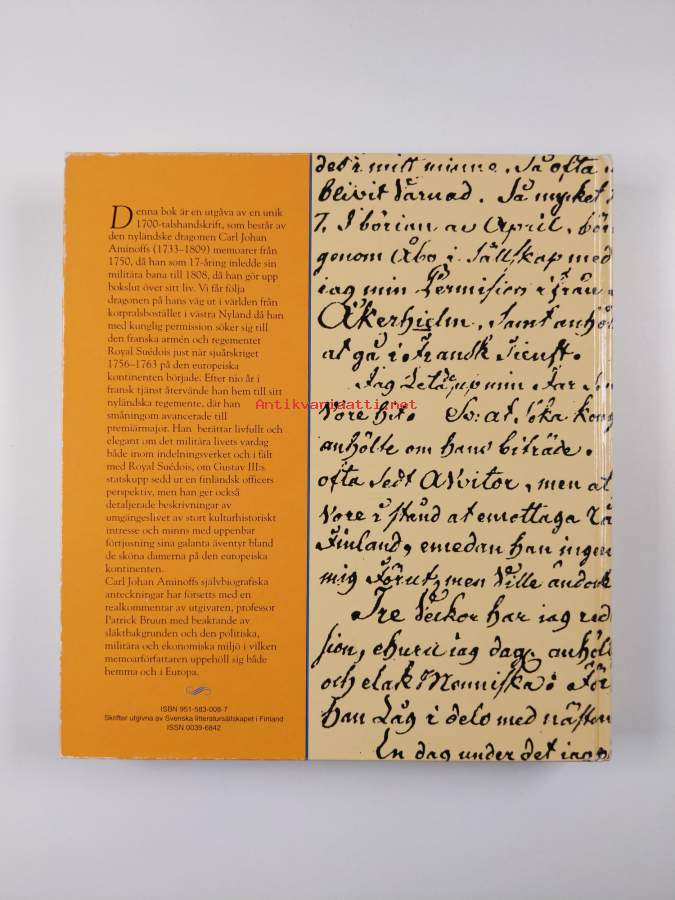 Denna bok är en utgåva av en unik
1700-talshandskrift, som består av
den nyländske dragonen Carl Johan
Aminoffs (1733–1809) memoarer från
1750, då han som 17-åring inledde sin
militära bana till 1808, då han gör upp
bokslut över sitt liv. Vi får följa
dragonen på hans väg ut i världen från
korpralsbostället i västra Nyland då han
med kunglig permission söker sig till
den franska armén och regementet
Royal Suédois just när sjuårskriget
1756–1763 på den europeiska
kontinenten började. Efter nio år i
fransk tjänst återvände han hem till sitt
nyländska regemente, där han
småningom avancerade till
premiärmajor. Han berättar livfullt och
elegant om det militära livets vardag
både inom indelningsverket och i fält
med Royal Suédois, om Gustav III:s
statskupp sedd ur en finländsk officers
perspektiv, men han ger också
detaljerade beskrivningar av
umgängeslivet av stort kulturhistoriskt
intresse och minns med uppenbar
förtjusning sina galanta äventyr bland
de sköna damerna på den europeiska
kontinenten.
Carl Johan Aminoffs självbiografiska
anteckningar har försetts med en
realkommentar av utgivaren, professor
Patrick Bruun med beaktande av
släktbakgrunden och den politiska,
militära och ekonomiska miljö i vilken
memoarförfattaren uppehöll sig både
hemma och i Europa.
ISBN 951-583-008-7
Skrifter utgivna av Svenska litteratursällskapet i Finland
ISSN 0039-6842
det i mitt minne. Så ofta
blivit Vårnad. Så mycket
7. I börian av April,
genom Åbo i Sällskap med
iag min Permision i från
Åkerhielm, Samt anhöl
at gå i Fransk Tienst.
Jag min Far
vore hit. Sv: at söka
anhölte om hans biträde.
ofta Sedt Avitor, men at
vore i stånd at emottaga
Finland, emedan han ingen
mig Förut, men Ville ändock
Tre Veckor har iag
sion, ehuru iag dag: anhöl
och elak Menniska:
han Låg i delo med nästen
En dag under det iag
Antikvariaatti.net